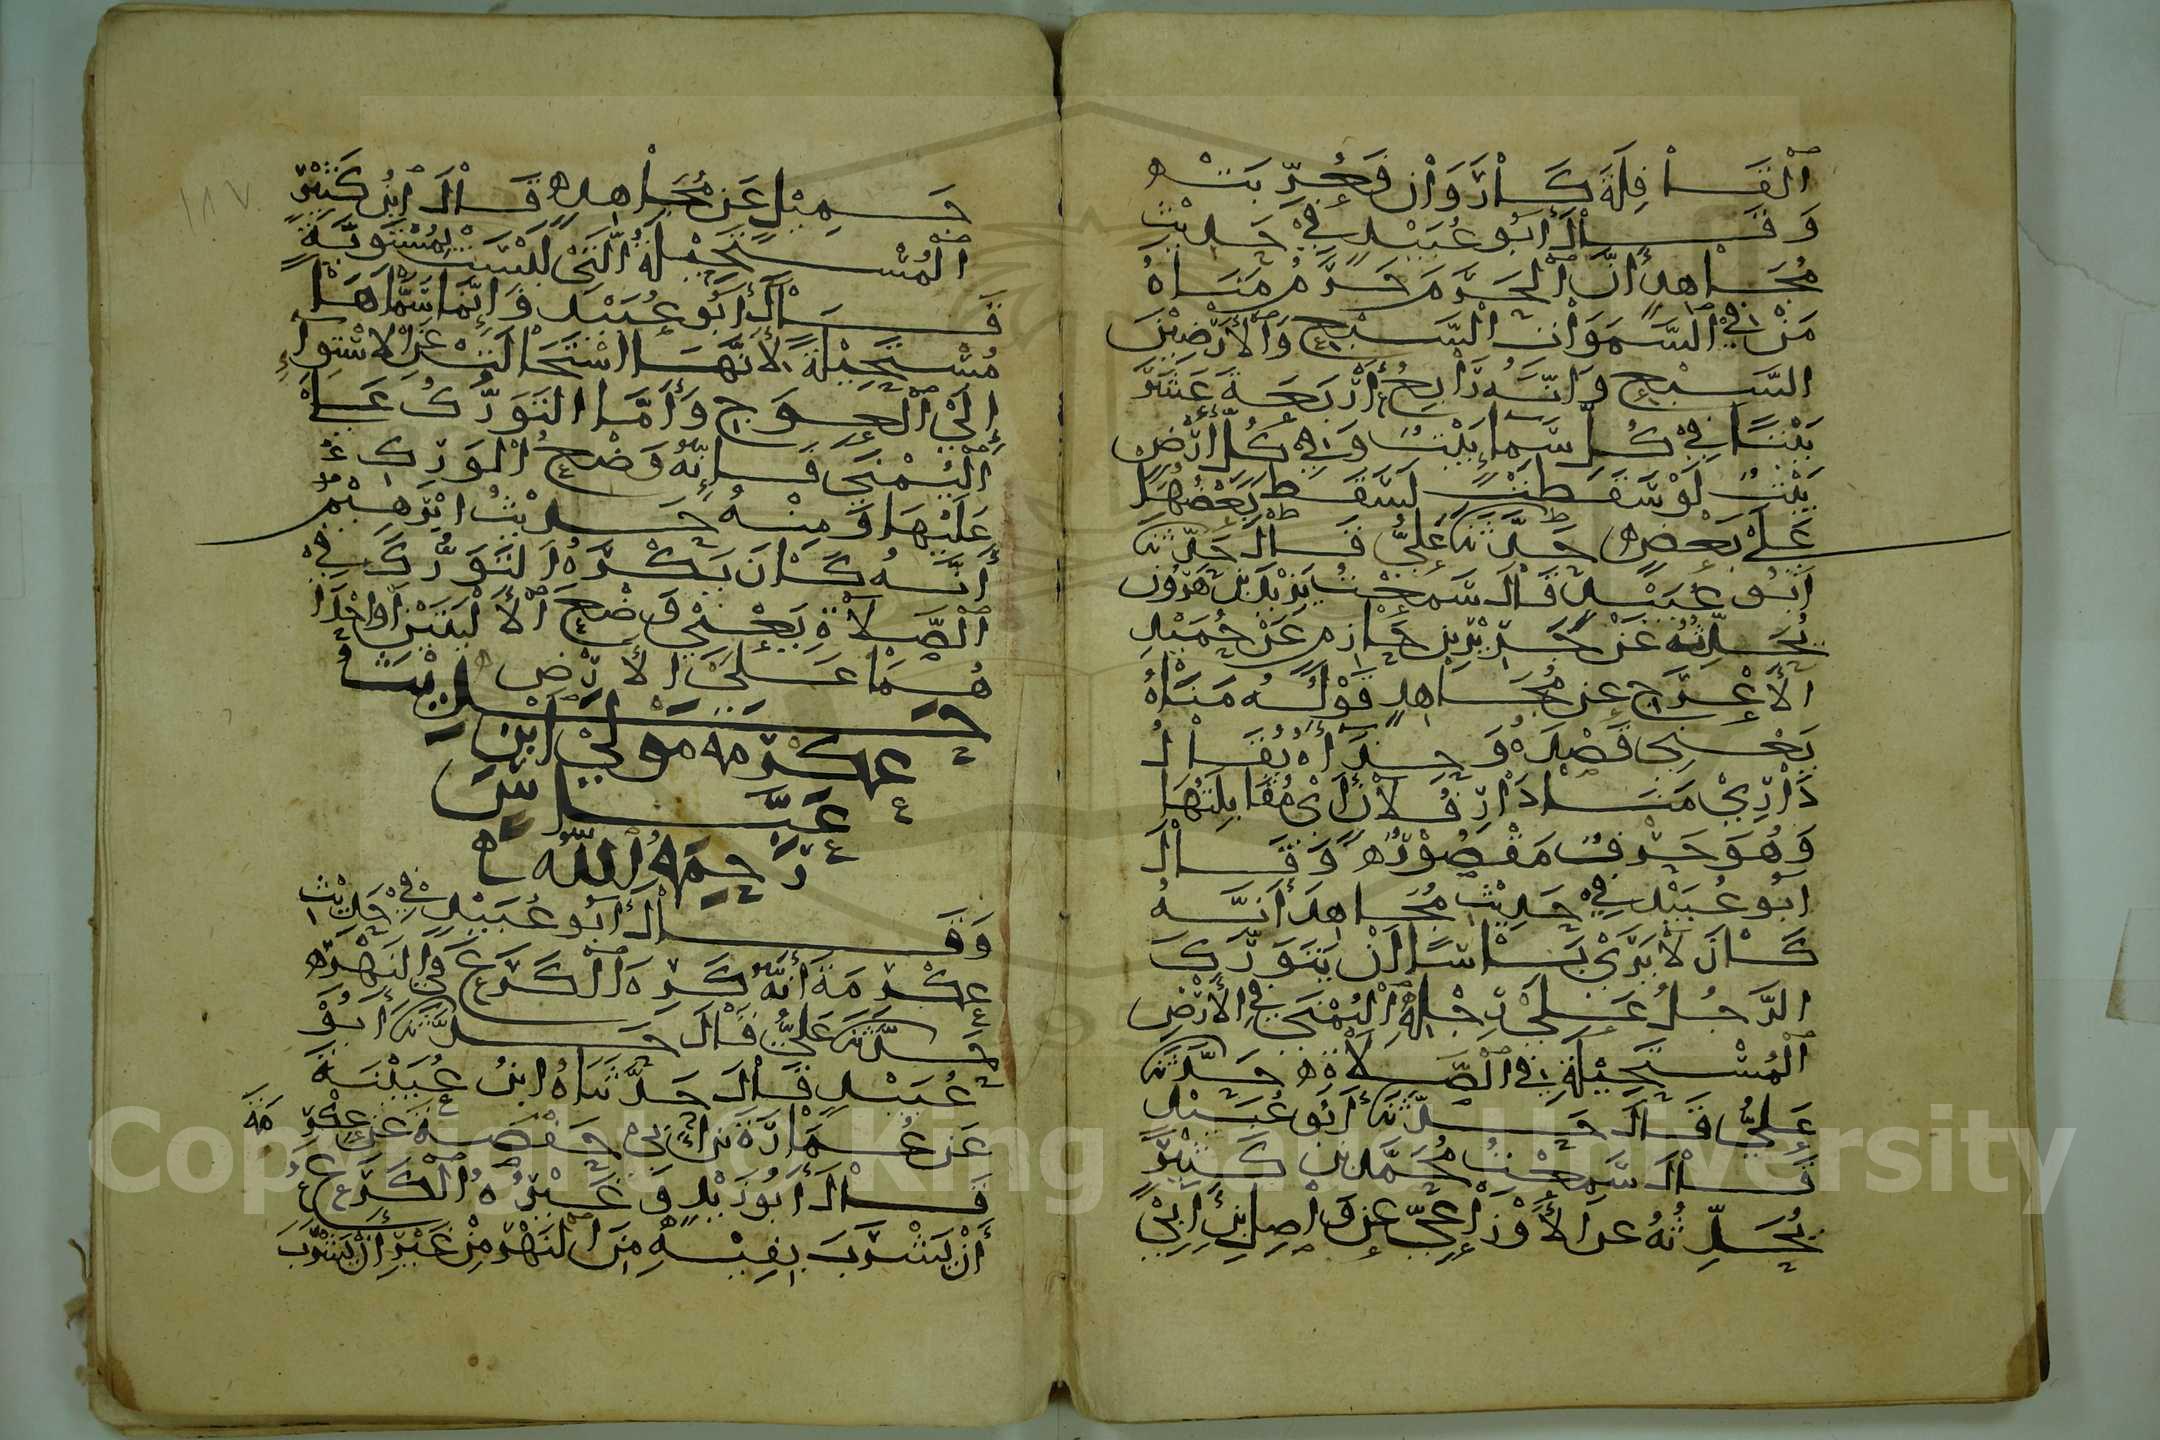 الْقَافِلَةَ كَارَوَان فَعُرِّبَتْ ه
وَقَالَ أَبُو عُبَيْدٍ فِي حَدِيثِ
مُجَاهِدٍ أَنَّ الْحَرَمَ حَرَمٌ مَنَاهُ
مَنْ فِي السَّمَوَاتِ السَّبْعِ وَالْأَرَضِيْنَ
السَّبْعِ وَأَنَّهُ رَابِعُ أَرْبَعَةَ عَشَرَ
بَيْتًا فِي كُلِّ سَمَاءٍ بَيْتٌ وَفِي كُلِّ أَرْضٍ
بَيْتٌ لَوْ سَقَطَتْ لَسَقَطَ بَعْضُهَا
عَلَى بَعْضٍ ه حَدَّثَنَا عَلِيٌّ قَالَ حَدَّثَنَا
أَبُو عُبَيْدٍ قَالَ سَمِعْتُ يَزِيْدَ بْنَ هَرُونَ
يُحَدِّثُهُ عَنْ جَرِيْرِ بْنِ حَازِمٍ عَنْ حُمَيْدٍ
الْأَعْرَجِ عَنْ مُجَاهِدٍ قَوْلُهُ مَنَاهُ
يَعْنِي قَصْدَهُ وَحِذَاهُ يُقَالُ
دَارِيْ مَنَا دَارِ فُلَانٍ أَيْ مُقَابِلَتُهَا
وَهُوَ حَرْفٌ مَقْصُوْرٌ ه وَقَالَ
أَبُو عُبَيْدٍ فِي حَدِيْثِ مُجَاهِدٍ أَنَّهُ
كَانَ لَا يَرَى بَأْسًا أَنْ يَتَوَرَّكَ
الرَّجُلُ عَلَى رِجْلِهِ الْيُمْنَى فِي الْأَرْضِ
الْمُسْتَحِيْلَةِ فِي الصَّلَاةِ ه حَدَّثَنَا
عَلِيٌّ قَالَ حَدَّثَنَا أَبُو عُبَيْدٍ
قَالَ سَمِعْتُ مُحَمَّدَ بْنَ كَثِيْرٍ
يُحَدِّثُهُ عَنِ الْأَوْزَاعِيِّ عَنْ وَاصِلِ بْنِ أَبِيْ
جَمِيْلٍ عَنْ مُجَاهِدٍ ه قَالَ ابْنُ كَثِيْرٍ
الْمُسْتَحِيْلَةُ الَّتِيْ لَيْسَتْ بِمُسْتَوِيَةٍ
قَالَ أَبُو عُبَيْدٍ وَإِنَّمَا سَمَّاهَا
مُسْتَحِيْلَةً لِأَنَّهَا اسْتَحَالَتْ عَنِ الْاسْتِوَاءِ
إِلَى الْعِوَجِ وَأَمَّا التَّوَرُّكُ عَلَى
الْيُمْنَى فَإِنَّهُ وَضْعُ الْوَرِكِ
عَلَيْهَا وَمِنْهُ حَدِيْثُ إِبْرَهِيْمَ
أَنَّهُ كَانَ يَكْرَهُ التَّوَرُّكَ فِي
الصَّلَاةِ يَعْنِي وَضْعَ الْأَلْيَتَيْنِ أَوْ إِحْدَا
هُمَا عَلَى الْأَرْضِ ه
حَدِيْثُ
عِكْرِمَه مَوْلَى ابْنِ
عَبَّاسٍ
رَحِمَهُ اللّٰهُ ه
وَقَالَ أَبُو عُبَيْدٍ فِي حَدِيْثِ
عِكْرِمَةَ أَنَّهُ كَرِهَ الْكَرَعَ فِي النَّهْرِ ه
حَدَّثَنَا عَلِيٌّ قَالَ حَدَّثَنَا أَبُو
عُبَيْدٍ قَالَ حَدَّثَنَاهُ ابْنُ عُيَيْنَةَ
عَنْ عُمَارَةَ بْنِ أَبِي حَفْصَةَ عَنْ عِكْرِمَةَ
قَالَ أَبُو زَيْدٍ وَغَيْرُهُ الْكَرَعُ
أَنْ يَشْرَبَ بِفِيْهِ مِنَ النَّهْرِ مِنْ غَيْرِ أَنْ يَشْرَبَ
١٨٧
Copyright © King Saud University